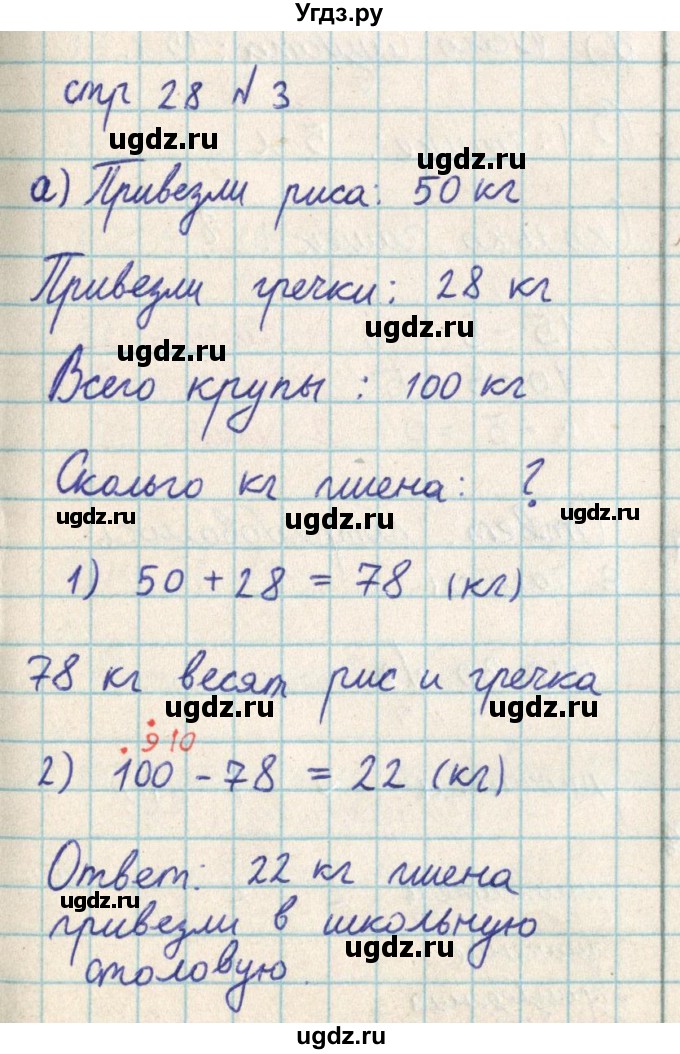 Угдз.ру
стр 28 №3
ugdz.ru ugdz.ru
а) Привезли риса: 50 кг
Привезли гречки: 28 кг
ugdz.ru ugdz.ru
Всего крупы : 100 кг
Сколько кг пшена: ?
ugdz.ru ugdz.ru ugdz.ru
1) 50 + 28 = 78 (кг)
78 кг весят рис и гречка
ugdz.ru ugdz.ru
. 9 10
2) 100 - 78 = 22 (кг)
Ответ: 22 кг пшена
ugdz.ru
привезли в школьную
ugdz.ru
столовую.
ugdz.ru